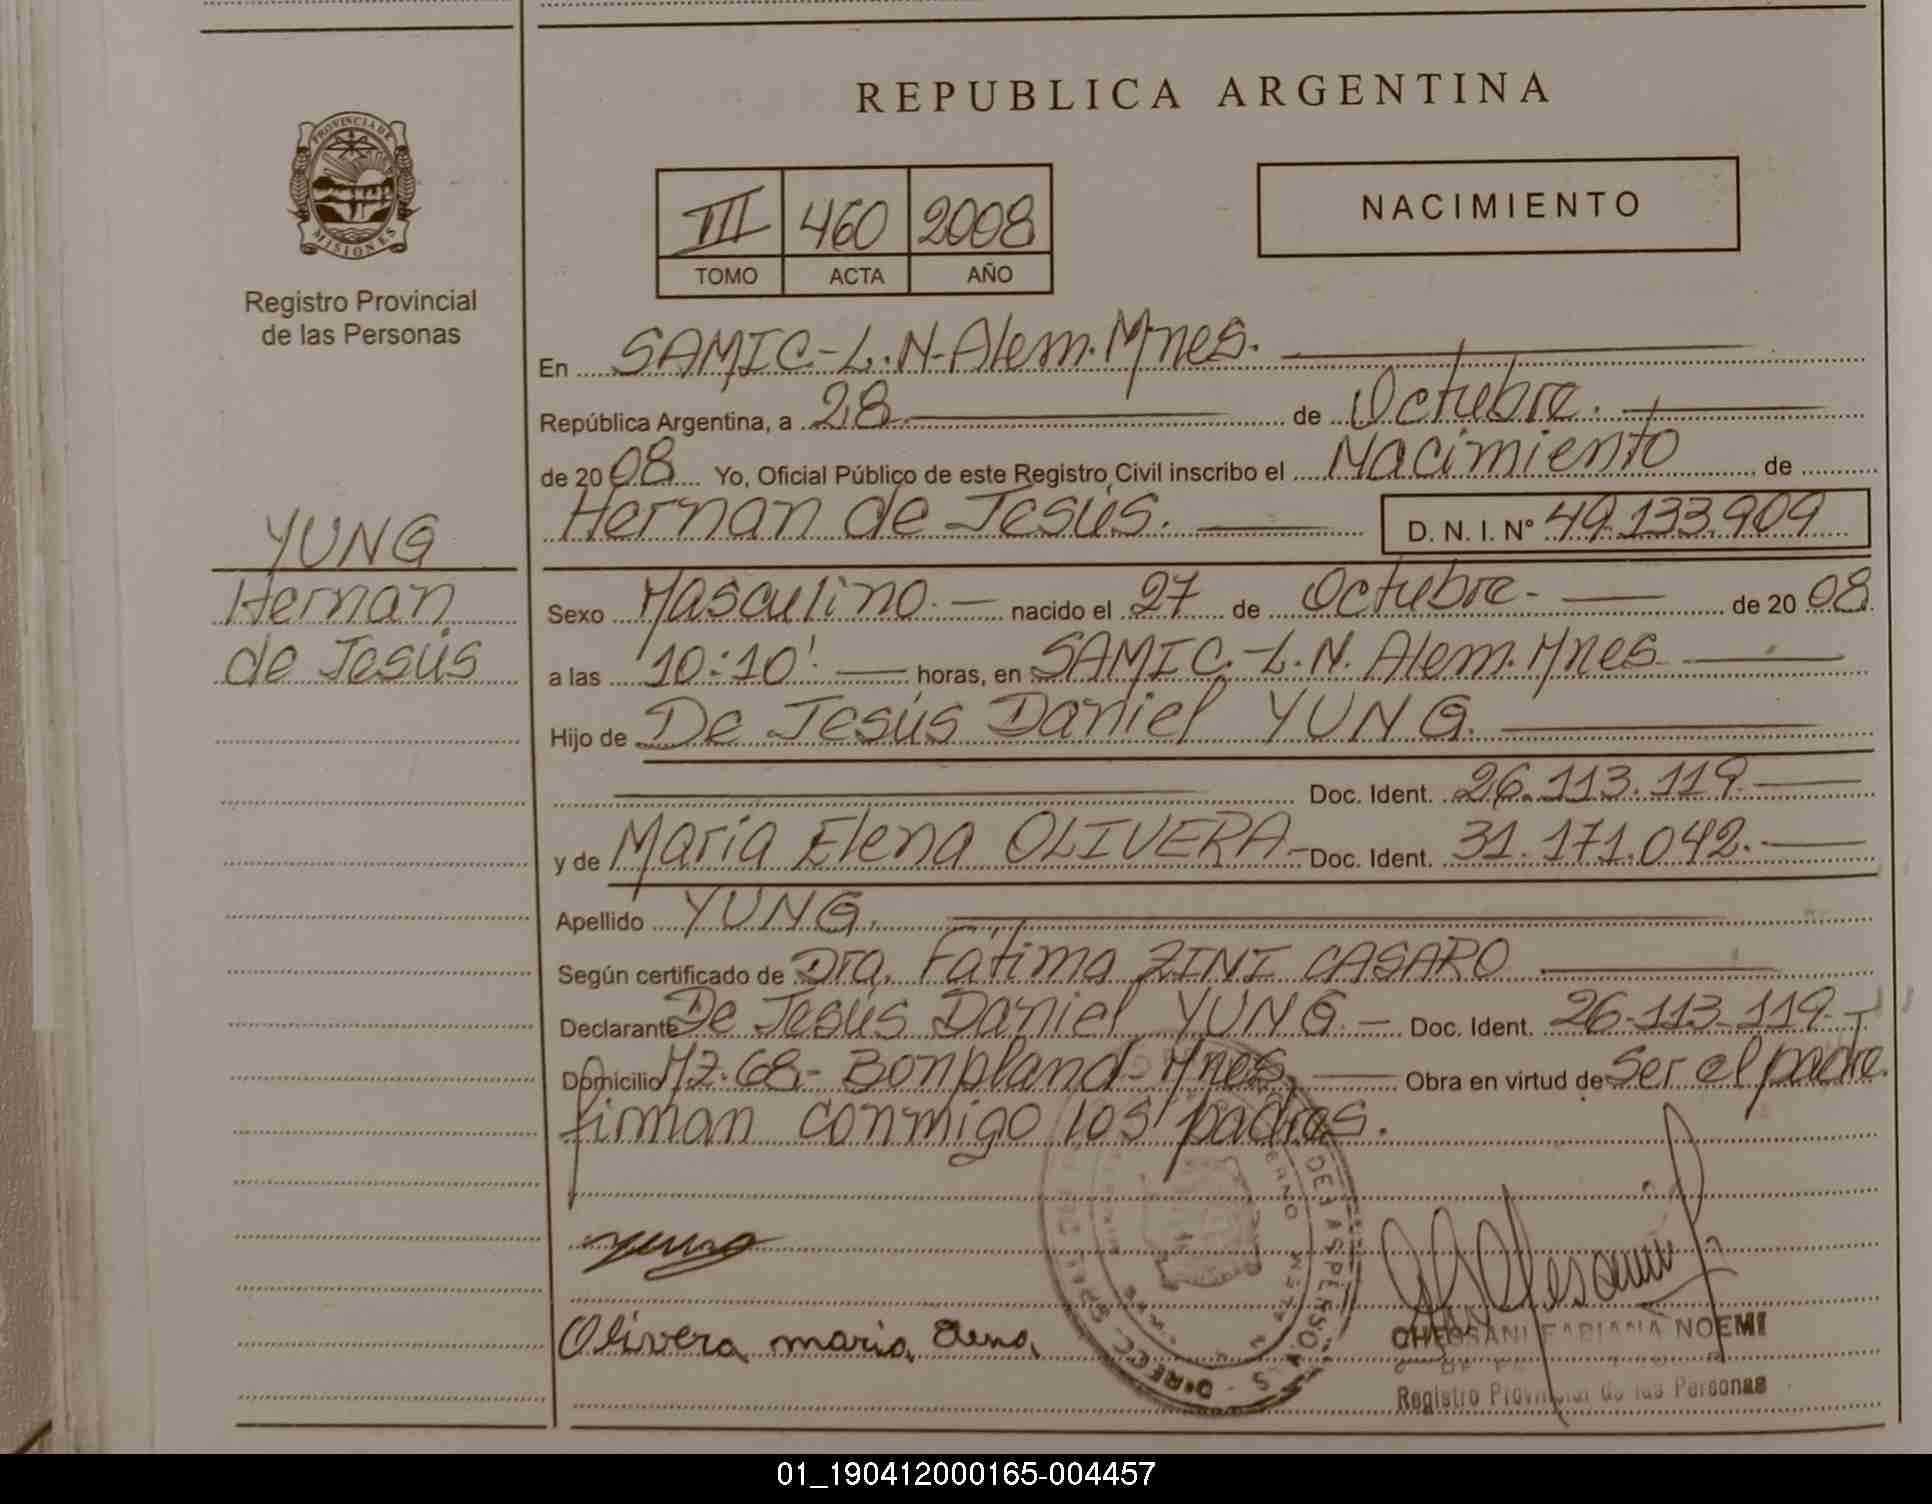 REPUBLICA ARGENTINA
PROVINCIA DE
MISIONES
Registro Provincial
de las Personas
III 460 2008
TOMO ACTA AÑO
NACIMIENTO
En SAMIC-L.N-Alem.Mnes.
República Argentina, a 28 de Octubre.
de 2008 Yo, Oficial Público de este Registro Civil inscribo el Nacimiento de
Hernan de Jesús. D. N. I. N° 49.133.909
YUNG
Hernan
de Jesús
Sexo Masculino. nacido el 27 de Octubre- de 2008
a las 10:10' horas, en SAMIC.-L.N. Alem.Mnes
Hijo de De Jesús Daniel YUNG.
Doc. Ident. 26.113.119.
y de Maria Elena OLIVERA- Doc. Ident. 31.171.042.
Apellido YUNG.
Según certificado de Dra. Fátima ZINI CASARO
Declarante De Jesús Daniel YUNG- Doc. Ident. 26-113-119-
Domicilio Mz.68.- Bonpland-Mnes. Obra en virtud de ser el padre.
firman conmigo los padres.
Yung
Olivera maria, Elena,
DE LAS PERSONAS - DIRECC
NOEMI
Registro Provincial de las Personas
01_190412000165-004457